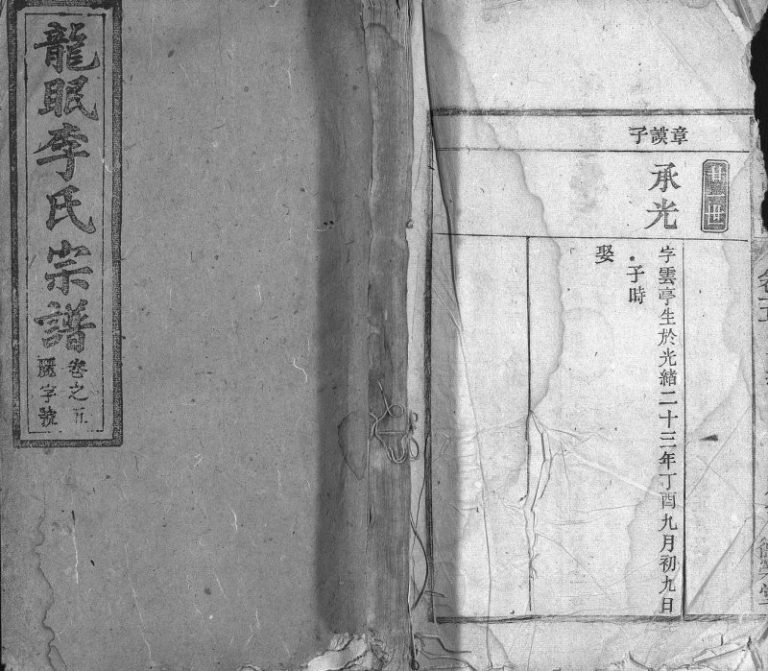 龍眠李氏宗譜
卷之五
字號
章謨子
廿一世
承光
字雲亭生於光緒二十三年丁酉九月初九日
子時
娶